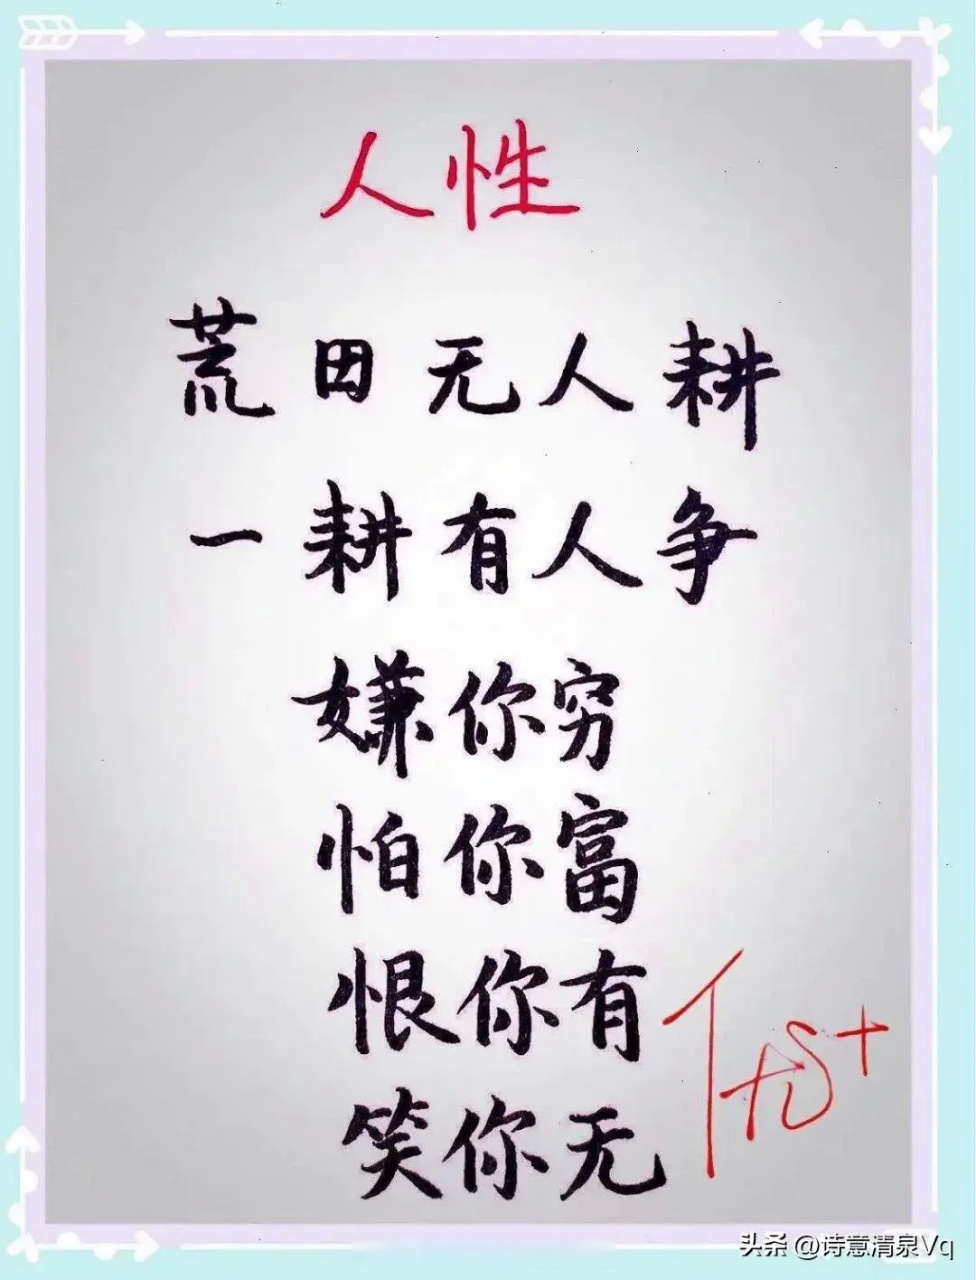 人性
荒田无人耕
一耕有人争
嫌你穷
怕你富
恨你有
笑你无
头条 @诗意清泉Vq